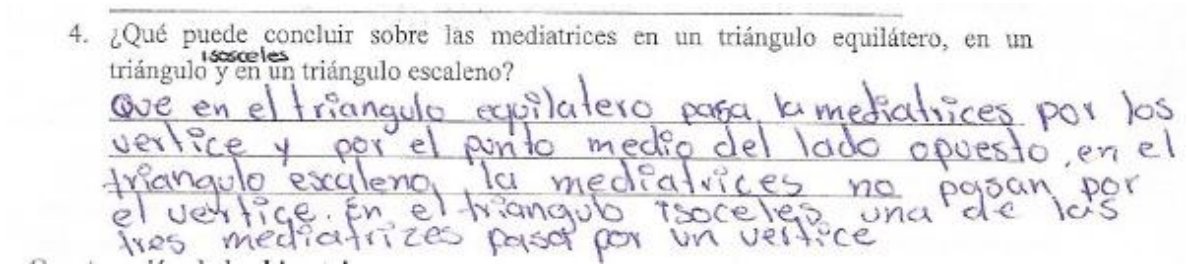 4. ¿Qué puede concluir sobre las mediatrices en un triángulo equilátero, en un
isosceles
triángulo y en un triángulo escaleno?
Que en el triangulo equilatero pasa la mediatrices por los
vertice y por el punto medio del lado opuesto, en el
triangulo escaleno, la mediatrices no pasan por
el vertice. En el triangulo isoceles una de las
tres mediatrizes pasa por un vertice